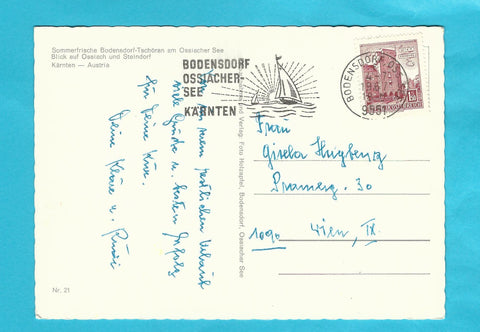 Sommerfrische Bodensdorf-Tschöran am Ossiacher See
Blick auf Ossiach und Steindorf
Kärnten — Austria
BODENSDORF
OSSIACHER-
SEE
KÄRNTEN
BODENSDORF
9551
meinem restlichen Urlaub
viele Grüße u. besten Erfolg
für Deine Kur.
Deine
u. Rudi
Verlag: Foto Holzapfel, Bodensdorf, Ossiacher See
Frau
Gisela
Pramerg. 30
1090 Wien, IX.
Nr. 21